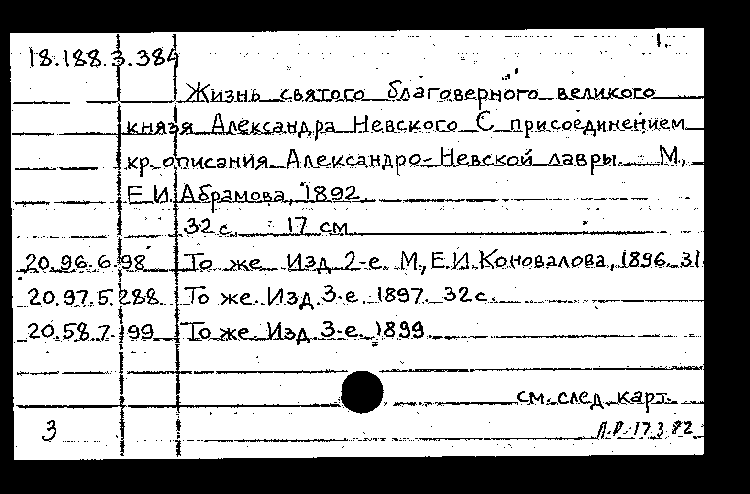 1.
18.188.3.384
Жизнь святого благоверного великого
князя Александра Невского С присоединением
кр. описания Александро-Невской лавры. М,
Е.И.Абрамова, 1892
32 с. 17 см
20.96.6.98 То же. Изд. 2-е. М, Е.И.Коновалова, 1896. 31
20.97.5.288 То же. Изд. 3-е. 1897. 32 с.
20.58.7.199 То же. Изд. 3-е. 1899
см. след. карт.
3 17.3.82